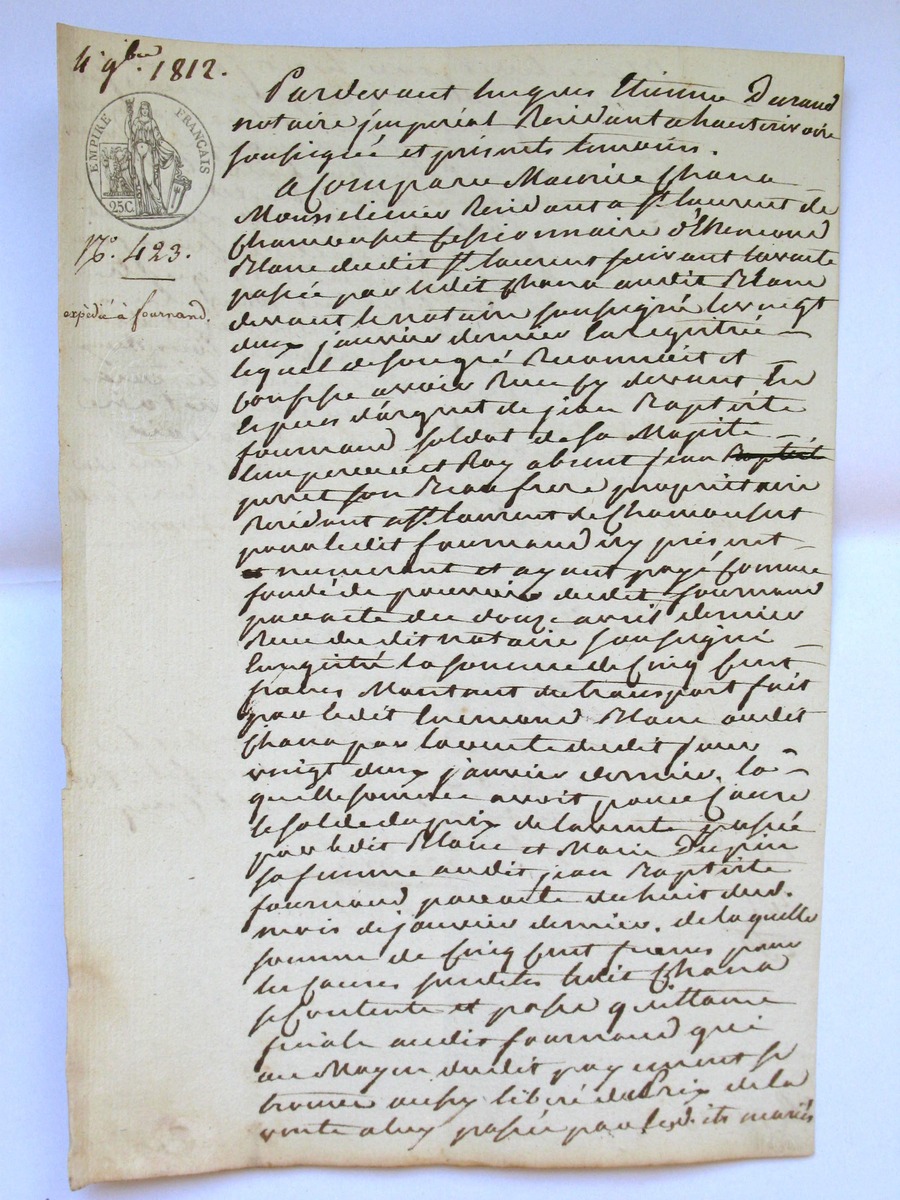 4 9bre. 1812.
EMPIRE FRANÇAIS
25C.
N°. 423.
expédié à fournand.
Pardevant hugues Etienne Durand
notaire jmpérial Residant a hauterivoire
soussigné et présents temoins.
a Comparu Maurice Chana
Mousselinier Residant a St. laurent de
Chamousset Cessionnaire d'Ennemond
Blanc dudit St. laurent suivant la vente
passée par ledit Chana audit Blanc
devant le notaire soussigné le vingt
deux janvier dernier Enregistrée
lequel de son gré Reconnoit et
Confesse avoir Reçu Cy devant En
Especes d'argent de jean Baptiste
fournand soldat de Sa Majesté
Empereur et Roy absent jean Baptiste
 son Beaufrere propriétaire
Residant a St. laurent de Chamousset
pour ledit fournand icy présent
numerant et ayant payé Comme
fondé de pouvoir dudit fournand
par acte du douze avril dernier
Reçu dudit notaire soussigné
Enregistré la somme de Cinq Cent
francs Montant du transport fait
par ledit Ennemond Blanc audit
Chana par la vente dudit jour
vingt deux janvier dernier. la
quelle somme avoit pour Cause
le solde du prix de la vente passée
par ledit Blanc et Marie Dupin
sa femme audit jean Baptiste
fournand par acte du huit dud.
mois de janvier dernier. de laquelle
somme de Cinq Cent francs pour
les Causes susdites ledit Chana
se Contente et passe quittance
finale audit fournand qui
au Moyen dudit payement se
trouve aussy libéré du Prix de la
vente a luy passée par lesdits mariés